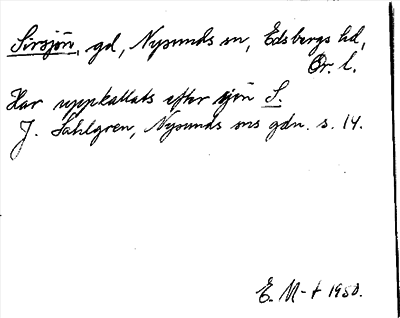 Sirsjön, gd, Nysunds sn, Edsbergs hd,
Ör. l.
Har uppkallats efter sjön S.
J. Sahlgren, Nysunds sns gdn. s. 14.
E. M-t 1950.